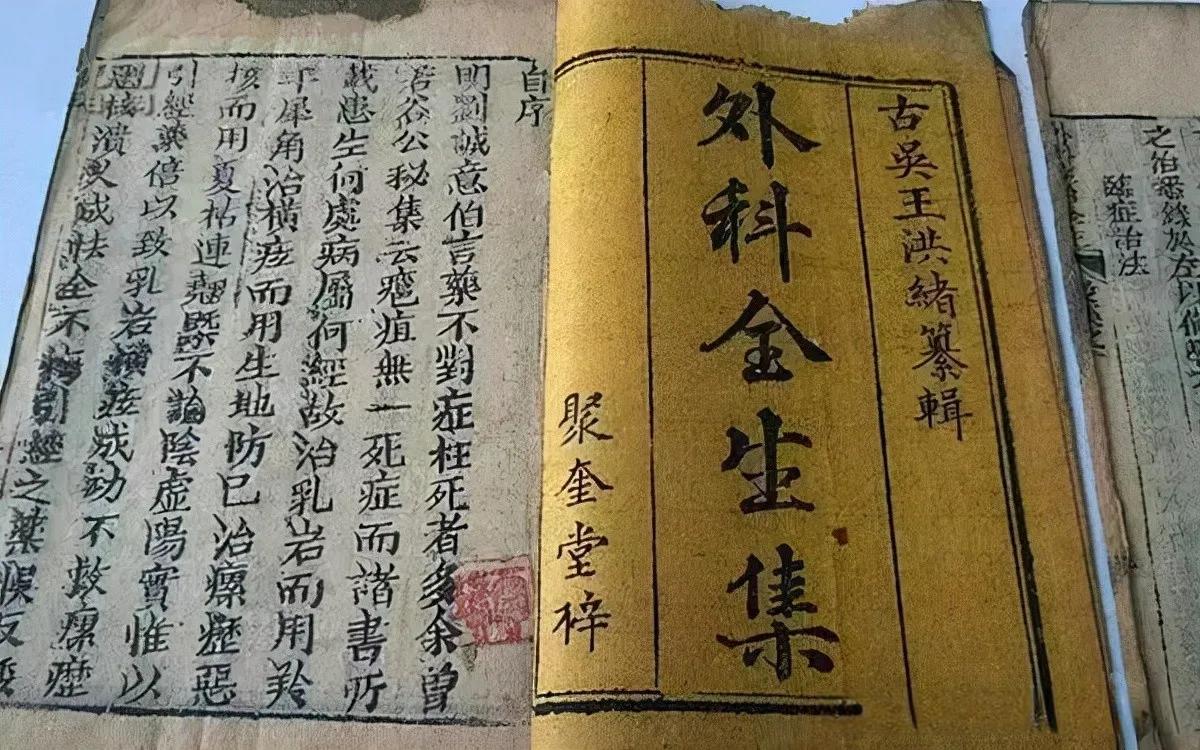 臨症治法
古吳王洪緒纂輯
外科全生集
聚奎堂梓
自序
明劉誠意伯言藥不對症枉死者多余曾
若谷公秘集云癰疽無一死症而諸書所
載患生何處病屬何經故治乳岩而用羚
羊犀角治橫痃而用生地防已治瘰癧惡
核而用夏枯連翹概不論陰虛陽實惟以
引經藥倍以致乳岩橫痃成功不救瘰癧
惡核潰久成怯全不悔引經之藥悞反